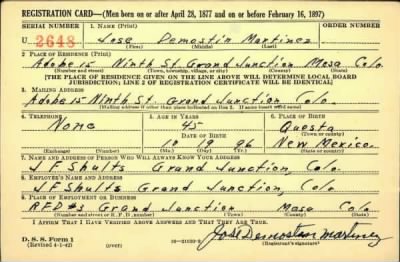 REGISTRATION CARD—(Men born on or after April 28, 1877 and on or before February 16, 1897)
SERIAL NUMBER 1. NAME (Print)
U 2648 Jose Demostin Martinez
(First) (Middle) (Last)
2. PLACE OF RESIDENCE (Print)
Adobe 15 Ninth St Grand Junction Mesa Colo.
(Number and street) (Town, township, village, or city) (County) (State)
[THE PLACE OF RESIDENCE GIVEN ON THE LINE ABOVE WILL DETERMINE LOCAL BOARD
JURISDICTION; LINE 2 OF REGISTRATION CERTIFICATE WILL BE IDENTICAL]
3. MAILING ADDRESS
Adobe 15 Ninth St. Grand Junction Colo.
[Mailing address if other than place indicated on line 2. If same insert word same]
4. TELEPHONE 5. AGE IN YEARS 6. PLACE OF BIRTH
None 45 Questa
DATE OF BIRTH (Town or county)
10 19 96 New Mexico.
(Exchange) (Number) (Mo.) (Day) (Yr.) (State or country)
7. NAME AND ADDRESS OF PERSON WHO WILL ALWAYS KNOW YOUR ADDRESS
J F Shults Grand Junction, Colo.
8. EMPLOYER'S NAME AND ADDRESS
J F Shults Grand Junction, Colo.
9. PLACE OF EMPLOYMENT OR BUSINESS
RFD #3 Grand Junction Mesa Colo
(Number and street or R. F. D. number) (Town) (County) (State)
I AFFIRM THAT I HAVE VERIFIED ABOVE ANSWERS AND THAT THEY ARE TRUE.
D. S. S. Form 1
(Revised 4-1-42) (over) Jose Demosten Martinez
(Registrant's signature)